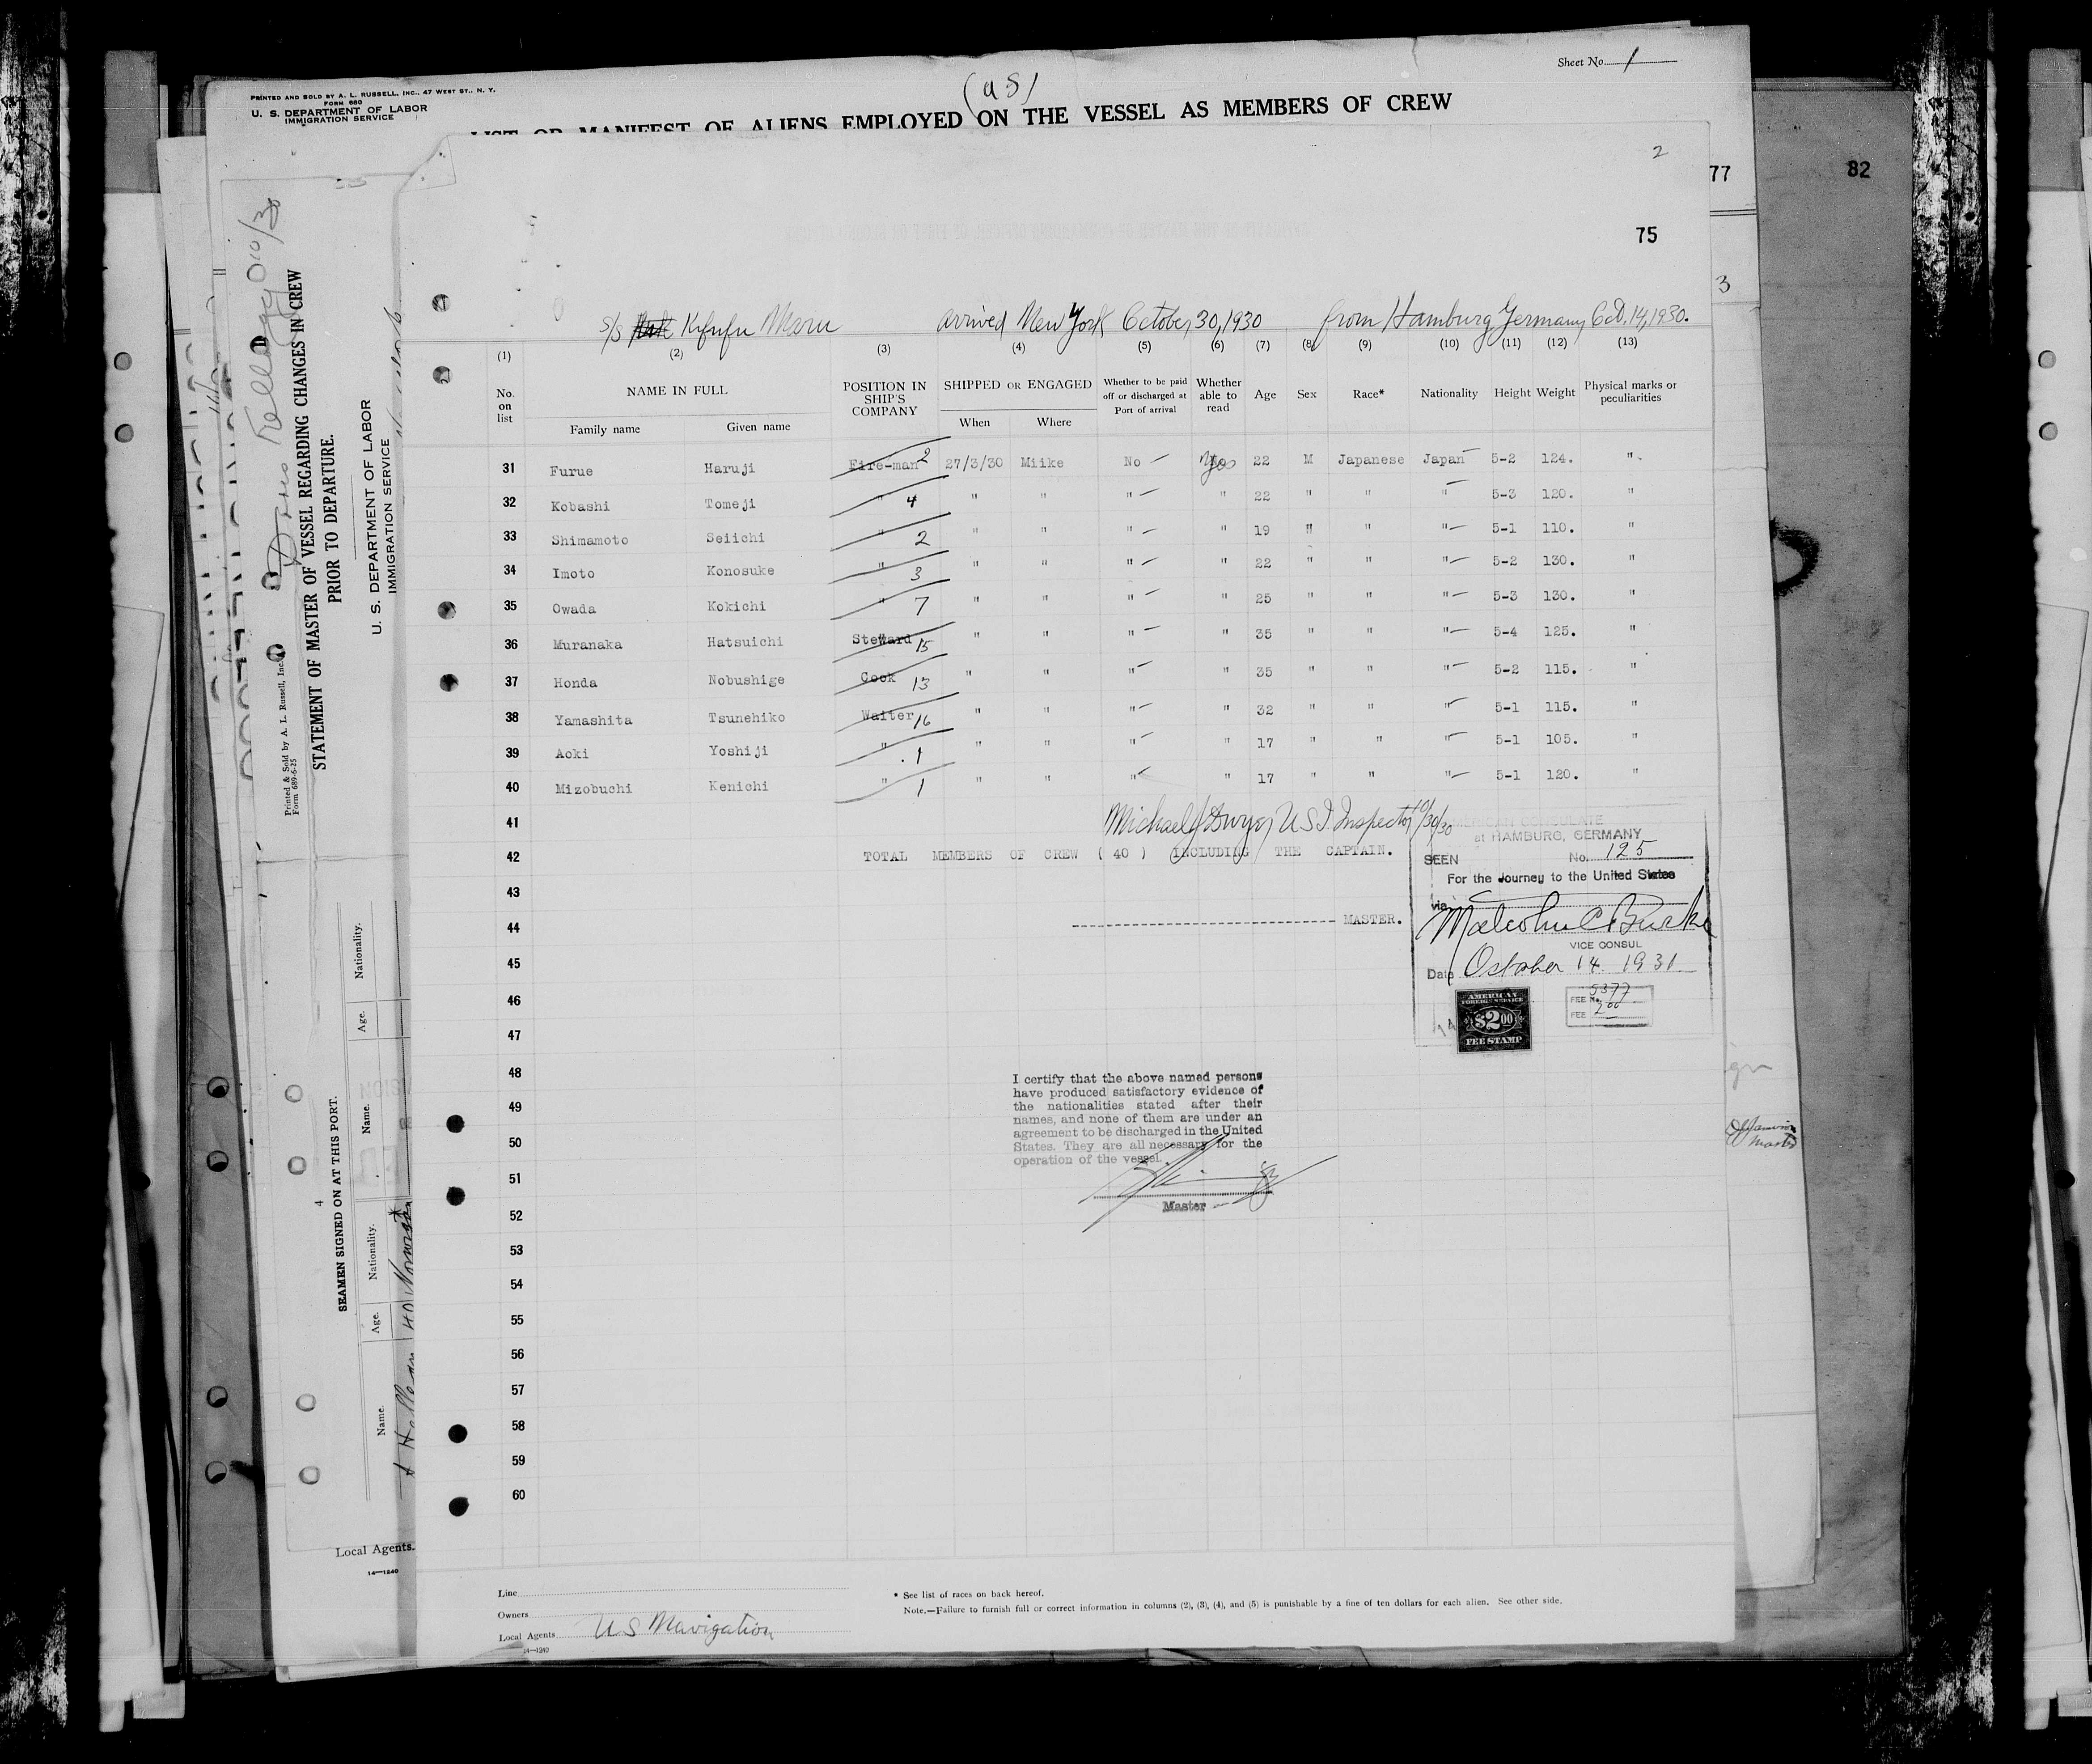 Sheet No. 1
PRINTED AND SOLD BY A. L. RUSSELL, INC., 47 WEST ST., N. Y.
FORM 680
U. S. DEPARTMENT OF LABOR
IMMIGRATION SERVICE
(a s)
LIST OR MANIFEST OF ALIENS EMPLOYED ON THE VESSEL AS MEMBERS OF CREW
2
77
82
75
3
S/S Kifufu Maru arrived New York October 30, 1930 from Hamburg Germany Oct. 14, 1930.
(1) (2) (3) (4) (5) (6) (7) (8) (9) (10) (11) (12) (13)
No. on list NAME IN FULL POSITION IN SHIP'S COMPANY SHIPPED OR ENGAGED Whether to be paid off or discharged at Port of arrival Whether able to read Age Sex Race* Nationality Height Weight Physical marks or peculiarities
Family name Given name When Where
31 Furue Haruji Fire-man 2 27/3/30 Miike No Yes 22 M Japanese Japan 5-2 124. "
32 Kobashi Tomeji " 4 " " " " 22 " " " 5-3 120. "
33 Shimamoto Seiichi " 2 " " " " 19 " " " 5-1 110. "
34 Imoto Konosuke " 3 " " " " 22 " " " 5-2 130. "
35 Owada Kokichi " 7 " " " " 25 " " " 5-3 130. "
36 Muranaka Hatsuichi Steward 15 " " " " 35 " " " 5-4 125. "
37 Honda Nobushige Cook 13 " " " " 35 " " " 5-2 115. "
38 Yamashita Tsunehiko Waiter 16 " " " " 32 " " " 5-1 115. "
39 Aoki Yoshiji " 1 " " " " 17 " " " 5-1 105. "
40 Mizobuchi Kenichi " 1 " " " " 17 " " " 5-1 120. "
41
Michael J Dwyer U S I Inspector 10/30/30
42 TOTAL MEMBERS OF CREW ( 40 ) (INCLUDING THE CAPTAIN.
43
44 MASTER.
45
46
47
48
49
50
51
52
53
54
55
56
57
58
59
60
AMERICAN CONSULATE
at HAMBURG, GERMANY
SEEN No. 125
For the Journey to the United States
via
Malcolm C Burke
VICE CONSUL
Date October 14 1931
AMERICAN
FOREIGN SERVICE
$2.00
FEE STAMP
FEE No. 5377
FEE 2.00
I certify that the above named persons
have produced satisfactory evidence of
the nationalities stated after their
names, and none of them are under an
agreement to be discharged in the United
States. They are all necessary for the
operation of the vessel.
Master
Line
Owners
Local Agents U S Navigation
14—1240
* See list of races on back hereof.
Note.—Failure to furnish full or correct information in columns (2), (3), (4), and (5) is punishable by a fine of ten dollars for each alien. See other side.
Master
STATEMENT OF MASTER OF VESSEL REGARDING CHANGES IN CREW
PRIOR TO DEPARTURE.
U. S. DEPARTMENT OF LABOR
IMMIGRATION SERVICE
Printed & Sold by A. L. Russell, Inc.
Form 689-6-25
4
SEAMEN SIGNED ON AT THIS PORT.
Name. Age. Nationality. Name. Age. Nationality.
Local Agents.
14—1240